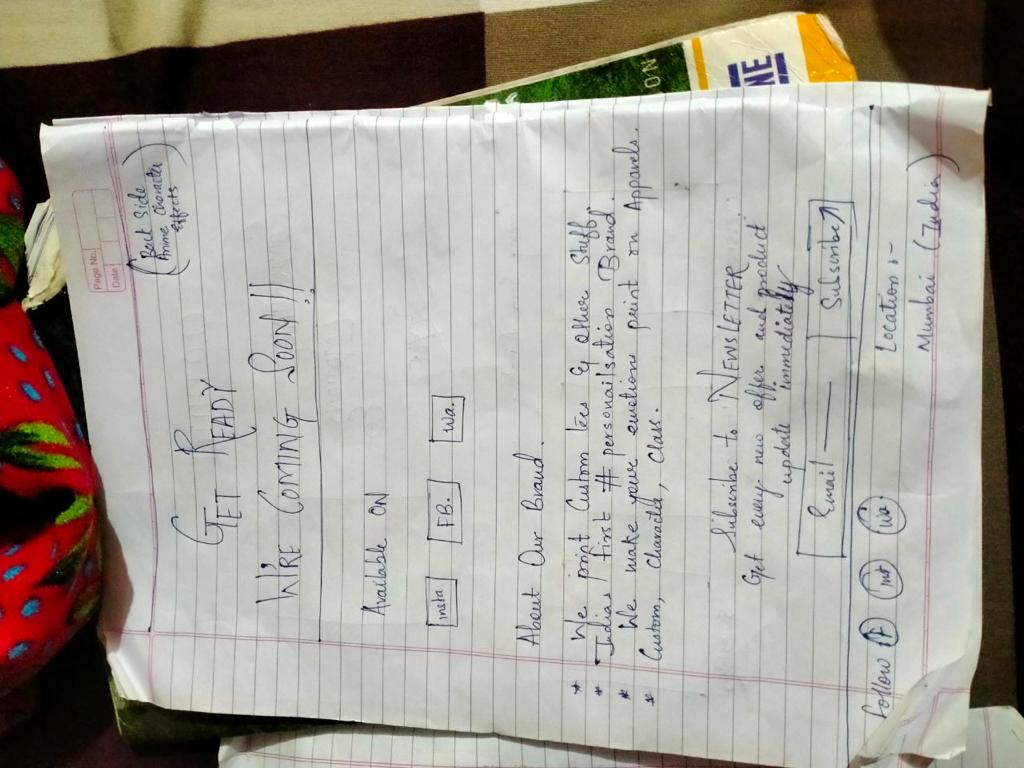 Page No.
Date
(Back Side
Anime Character
effects)
GET READY
W'RE COMING SOON!!
Available ON
insta
FB.
Wa.
About Our Brand.
* We print Custom tees & other Stuff.
* Indias first # personailsation Brand.
* We make your emotions print on Apparels.
* Custom, Character, Class.
Subscribe to NEWSLETTER
Get every new offer and product
update immediately
Email
Subscribe
follow F int wa
Location :-
Mumbai (India)
ON
NE